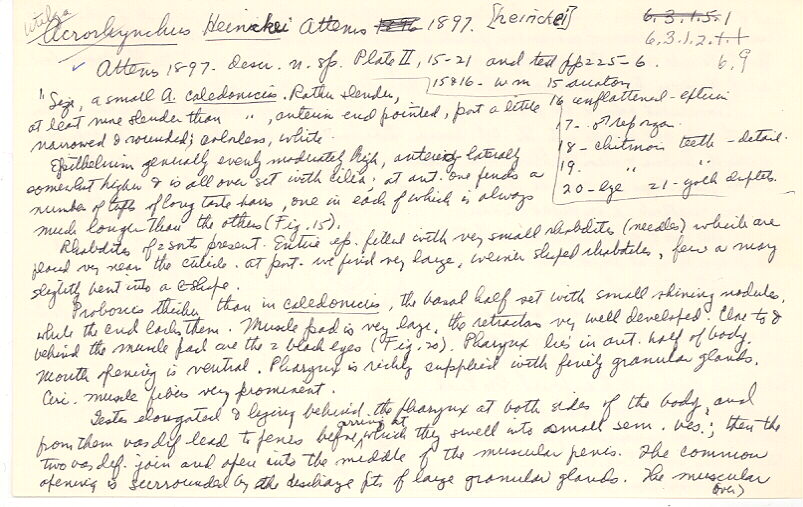 Acrorhynchus Heinckei Attems 1896 1897. [heinckei]
6.3.1.5.1
6.3.1.2.++
6.9
✓ Attems 1897. Descr. n. sp. Plate II, 15-21 and text pp 225-6.
15 & 16 - w m 15 anatom
16 unflattened - extern
17 - ♂ rep organ.
18 - chitinous teeth - detail.
19. " "
20 - eye 21 - yolk dupts.
"Size, a small A. caledonicus. Rather slender,
at least more slender than " , anterior end pointed, post a little
narrowed & rounded; colorless, white.
Epithelium generally evenly moderately high, anteriorly laterally
somewhat higher & is all over set with cilia; at ant. one finds a
number of tufts of long taste hairs, one in each of which is always
much longer than the others (Fig. 15).
Rhabdites of 2 sorts present. Entire ep. filled with very small rhabdites (needles) which are
placed very near the cuticle. at post. we find very large, weiner shaped rhabdites, few a many
slightly bent into a C shape.
Proboscis thicker than in caledonicus, the basal half set with small shining nodules,
while the end lacks them. Muscle pad is very large, the retractors very well developed. Close to &
behind the muscle pad are the 2 black eyes (Fig. 20). Pharynx lies in ant. half of body.
Mouth opening is ventral. Pharynx is richly supplied with finely granular glands.
Circ. muscle fibers very prominent.
Testes elongated & lying behind the pharynx at both sides of the body, and
from them vas def lead to penes before arriving at which they swell into small sem. ves.; then the
two vas def. join and open into the middle of the muscular penis. The common
opening is surrounded by the discharge pts of large granular glands. The muscular
(over)